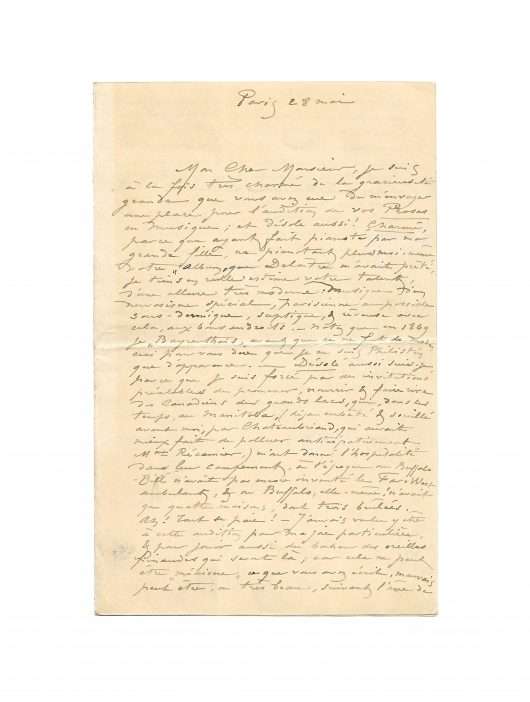 Paris 28 mai
Mon Cher Monsieur, je suis
à la fois très charmé de la gracieuseté
grande que vous avez eue de me ménager
une place pour l'audition de vos Proses
en musique; et désolé aussi! Charmé,
parce que ayant fait pianoter par ma
grande fille, ne pianotant plus moi-même
votre album, que Delâtre m'avait prêté,
je tiens en réelle estime votre talent
d'une allure très moderne. Musique d'un
nervosisme spécial, parisienne au possible
sous-dermique, sceptique, & rieuse avec
cela, aux bons endroits. - Notez que en 1869
je "Bayreuthais, avant que ce ne fut de
ceci pour vous dire que je ne suis Philistin
que d'apparence. — Désolé aussi suis-je
parce que je suis forcé par des invitations
préalables de promener, nourrir & faire rire
des Canadiens des grands lacs, qui, dans les
temps, au Manitoba, (déjà embêté & souillé
avant moi, par Chateaubriand, qui aurait
mieux fait de polluer
Mme Récamier,) m'ont donné l'hospitalité
dans leur campement, à l'époque où Buffalo
-Bill n'avait pas encore inventé le Far-West
ambulant, & où Buffalo, elle-même, n'avait
que quatre maisons, dont trois brûlées.
Ah! Tout se paie! - J'aurais voulu y être
à cette audition pour ma joie particulière,
& pour jouir aussi du des oreilles
finaudes qui seront là; car cela ne peut
être médiocre, ce que vous avez écrit, mauvais
peut-être, ou très beau, suivant l'âme de